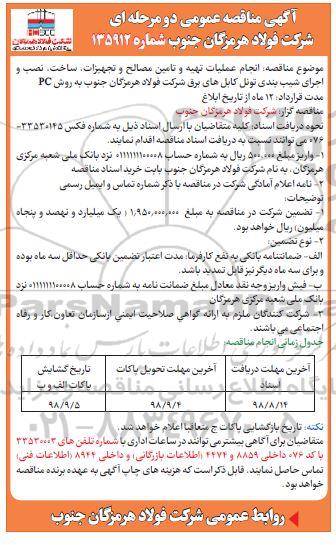 آگهی مناقصه عمومی دو مرحله ای
شرکت فولاد هرمزگان جنوب شماره ۱۳۵۹۱۲
موضوع مناقصه: انجام عملیات تهیه و تامین مصالح و تجهیزات، ساخت، نصب و
اجرای شیب بندی تونل کابل های برق شرکت فولاد هرمزگان جنوب به روش PC
مدت قرارداد: ۱۲ ماه از تاریخ ابلاغ
مناقصه گزار: شرکت فولاد هرمزگان جنوب
نحوه دریافت اسناد: کلیه متقاضیان با ارسال اسناد ذیل به شماره فکس ۳۳۵۳۰۱۴۵-
۰۷۶ می توانند نسبت به دریافت اسناد مناقصه اقدام نمایند.
۱- واریز مبلغ ۵۰۰.۰۰۰ ریال به شماره حساب ۰۱۱۱۱۱۱۱۰۰۰۰۸ نزد بانک ملی شعبه مرکزی
هرمزگان، به نام شرکت فولاد هرمزگان جنوب بابت خرید اسناد مناقصه
۲- نامه اعلام آمادگی شرکت در مناقصه با ذکر شماره تماس و ایمیل رسمی
توضیحات:
۱- تضمین شرکت در مناقصه به مبلغ ۱,۹۵۰,۰۰۰,۰۰۰ ( یک میلیارد و نهصد و پنجاه
میلیون) ریال خواهد بود.
۲- نوع تضمین:
الف- ضمانتنامه بانکی به نفع کارفرما: مدت اعتبار تضمین بانکی حداقل سه ماه بوده
و برای سه ماه دیگر نیز قابل تمدید باشد.
ب- فیش واریز وجه نقد معادل مبلغ ضمانت نامه به شماره حساب ۰۱۱۱۱۱۱۱۰۰۰۰۸ نزد
بانک ملی شعبه مرکزی هرمزگان
۳- شرکت کنندگان ملزم به ارائه گواهی صلاحیت ایمنی ازسازمان تعاون،کار و رفاه
اجتماعی می باشند.
جدول زمانی انجام مناقصه:
آخرین مهلت دریافت اسناد آخرین مهلت تحویل پاکات تاریخ گشایش پاکات الف و ب
۹۸/۸/۱۴ ۹۸/۹/۴ ۹۸/۹/۵
نکته: تاریخ بازگشایی پاکات ج متعاقبا اعلام خواهد شد.
متقاضیان برای آگاهی بیشتر می توانند در ساعات اداری با شماره تلفن های ۳۳۵۳۰۰۰۳
با کد ۰۷۶ داخلی ۸۸۵۹ و ۴۴۷۴ (اطلاعات بازرگانی) و داخلی ۸۹۴۴ (اطلاعات فنی)
تماس حاصل نمایند. قابل ذکر است که هزینه های چاپ آگهی به عهده برنده مناقصه
خواهد بود.
روابط عمومی شرکت فولاد هرمزگان جنوب